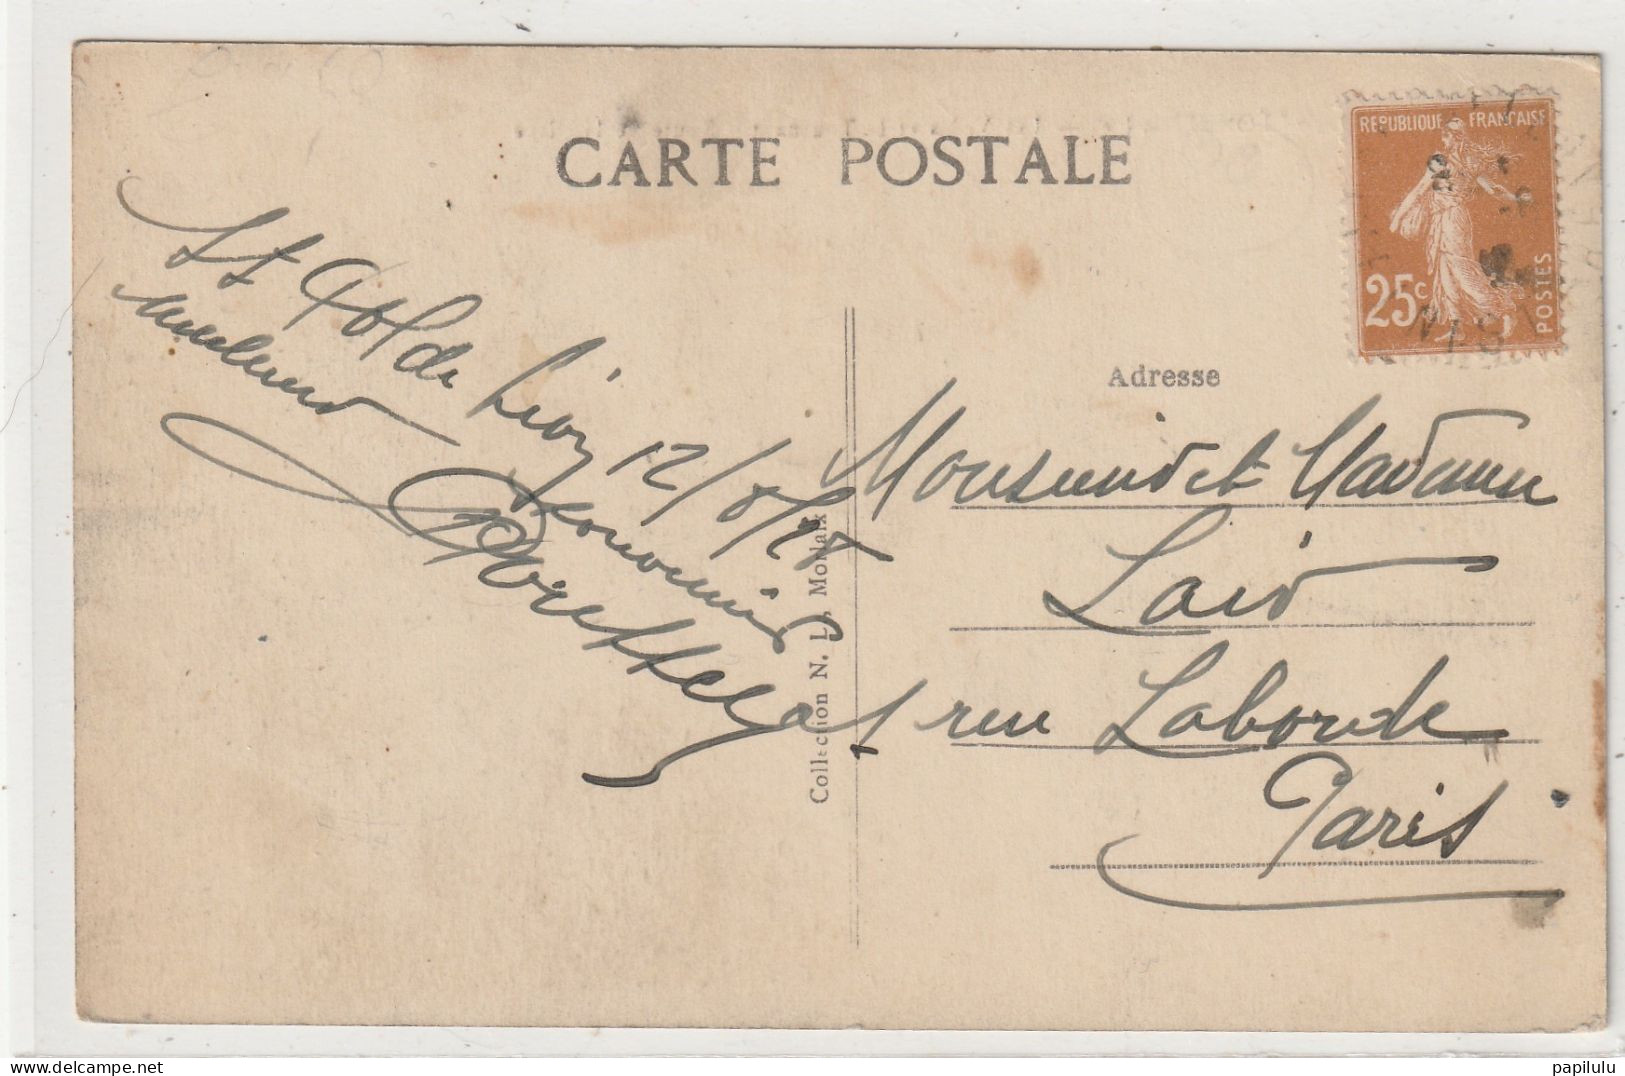 CARTE POSTALE
REPUBLIQUE FRANÇAISE
25c
POSTES
St Pol de Léon 12/8/28
Meilleurs
Souvenirs
Adresse
Monsieur et Madame
Laid
1 rue Laborde
Paris
Collection N. D., Morlaix
papilulu